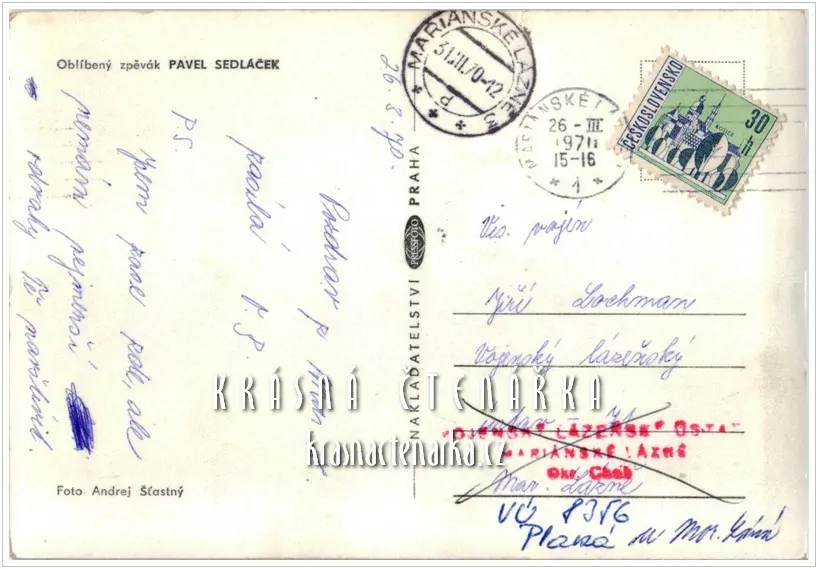 Oblíbený zpěvák PAVEL SEDLÁČEK
26. 3. 70.
Pozdrav z
posílá V. P.
P.S.
Jsem zase zde, ale
nemám nejmenší
Tě navštívit.
Foto Andrej Šťastný
NAKLADATELSTVÍ PRESSFOTO PRAHA
MARIÁNSKÉ LÁZNĚ 3
31.III.70-12
P
MARIÁNSKÉ L
26 - III
1970
15-16
1
ČESKOSLOVENSKO
KOŠICE
30 h
Vis. vojín
Jiří Lochman
Vojenský lázeňský
ústav
Mar. Lázně
VOJENSKÝ LÁZEŇSKÝ ÚSTAV
MARIÁNSKÉ LÁZNĚ
Okr. Cheb
VÚ 8356
Planá u Mar. Lázní
KRÁSNÁ ČTENÁŘKA
krasnactenarka.cz